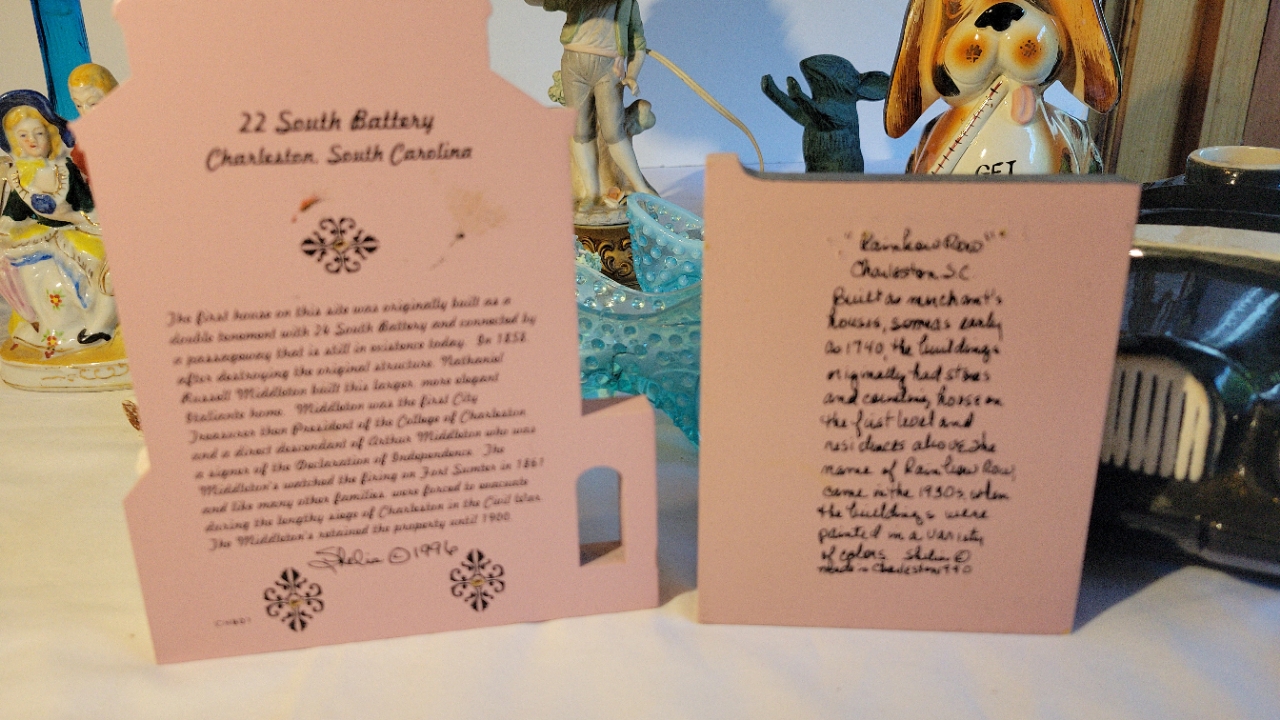 22 South Battery
Charleston, South Carolina
The first house on this site was originally built as a
double tenement with 26 South Battery and connected by
a passageway that is still in existence today. In 1858
after destroying the original structure, Nathaniel
Russell Middleton built this larger, more elegant
Italiante home. Middleton was the first City
Treasurer then President of the College of Charleston
and a direct descendant of Arthur Middleton who was
a signer of the Declaration of Independence. The
Middleton's watched the firing on Fort Sumter in 1861
and like many other families, were forced to evacuate
during the lengthy siege of Charleston in the Civil War.
The Middleton's retained the property until 1900.
Shelia © 1996
"Rainbow Row"
Charleston, S.C.
Built as merchant's
houses, some as early
as 1740, the buildings
originally had stores
and counting house on
the first level and
residences above. The
name of Rainbow Row,
came in the 1930s, when
the buildings were
painted in a variety
of colors Shelia ©
made in Charleston
GET